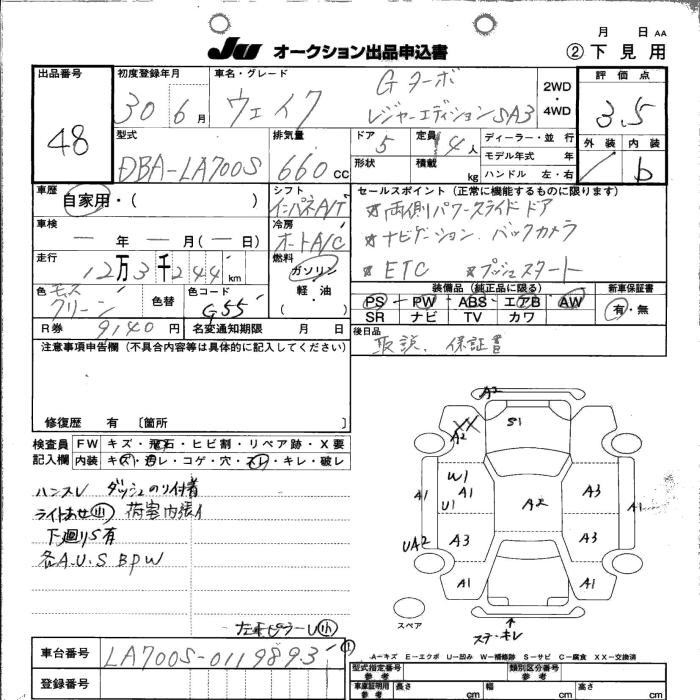 月 日 AA
JU オークション出品申込書 ②下見用
出品番号 48
初度登録年月 30 6月
車名・グレード ウェイク Gターボ
レジャーエディションSA3
2WD・4WD
評価点 3.5
外装 内装 b
型式 DBA-LA700S
排気量 660 CC
ドア 5 定員 4人
形状 積載 kg
ディーラー・並行
モデル年式 年
ハンドル 左・右
車歴 自家用・( )
シフト インパネA/T
セールスポイント(正常に機能するものに限ります)
※両側パワースライドドア
※ナビゲーション、バックカメラ
※ETC ※プッシュスタート
車検 ― 年 ― 月(― 日)
冷房 オートA/C
走行 12万3千244km
燃料 ガソリン
軽・油
( )
色 モスグリーン 色替
色コード G55
装備品(純正品に限る) 新車保証書
PS PW ABS エアB AW 有・無
SR ナビ TV カワ
R券 9140円 名変通知期限 月 日
後日品 取説、保証書
注意事項申告欄(不具合内容等は具体的に記入してください)
修復歴 有 〔箇所 〕
検査員記入欄
FW キズ・飛石・ヒビ割・リペア跡・X要
内装 キズ・汚レ・コゲ・穴・スレ・キレ・破レ
ハンスレ ダッシュのり付着
ライトあせ小 荷室内張イ
下廻りS有
各A.U.S BPW
A2
A2 XX
S1
W1
A1
U1
A1
A2
A3
A1
UA2
A3
A3
A1
A1
スペア
ステーキレ
A―キズ E―エクボ U―凹み W―補修跡 S―サビ C―腐食 XX―交換済
車台番号 LA700S-0119893
登録番号
型式指定番号 参考
類別区分番号 参考
車庫証明用 参考 長さ cm 幅 cm 高さ cm